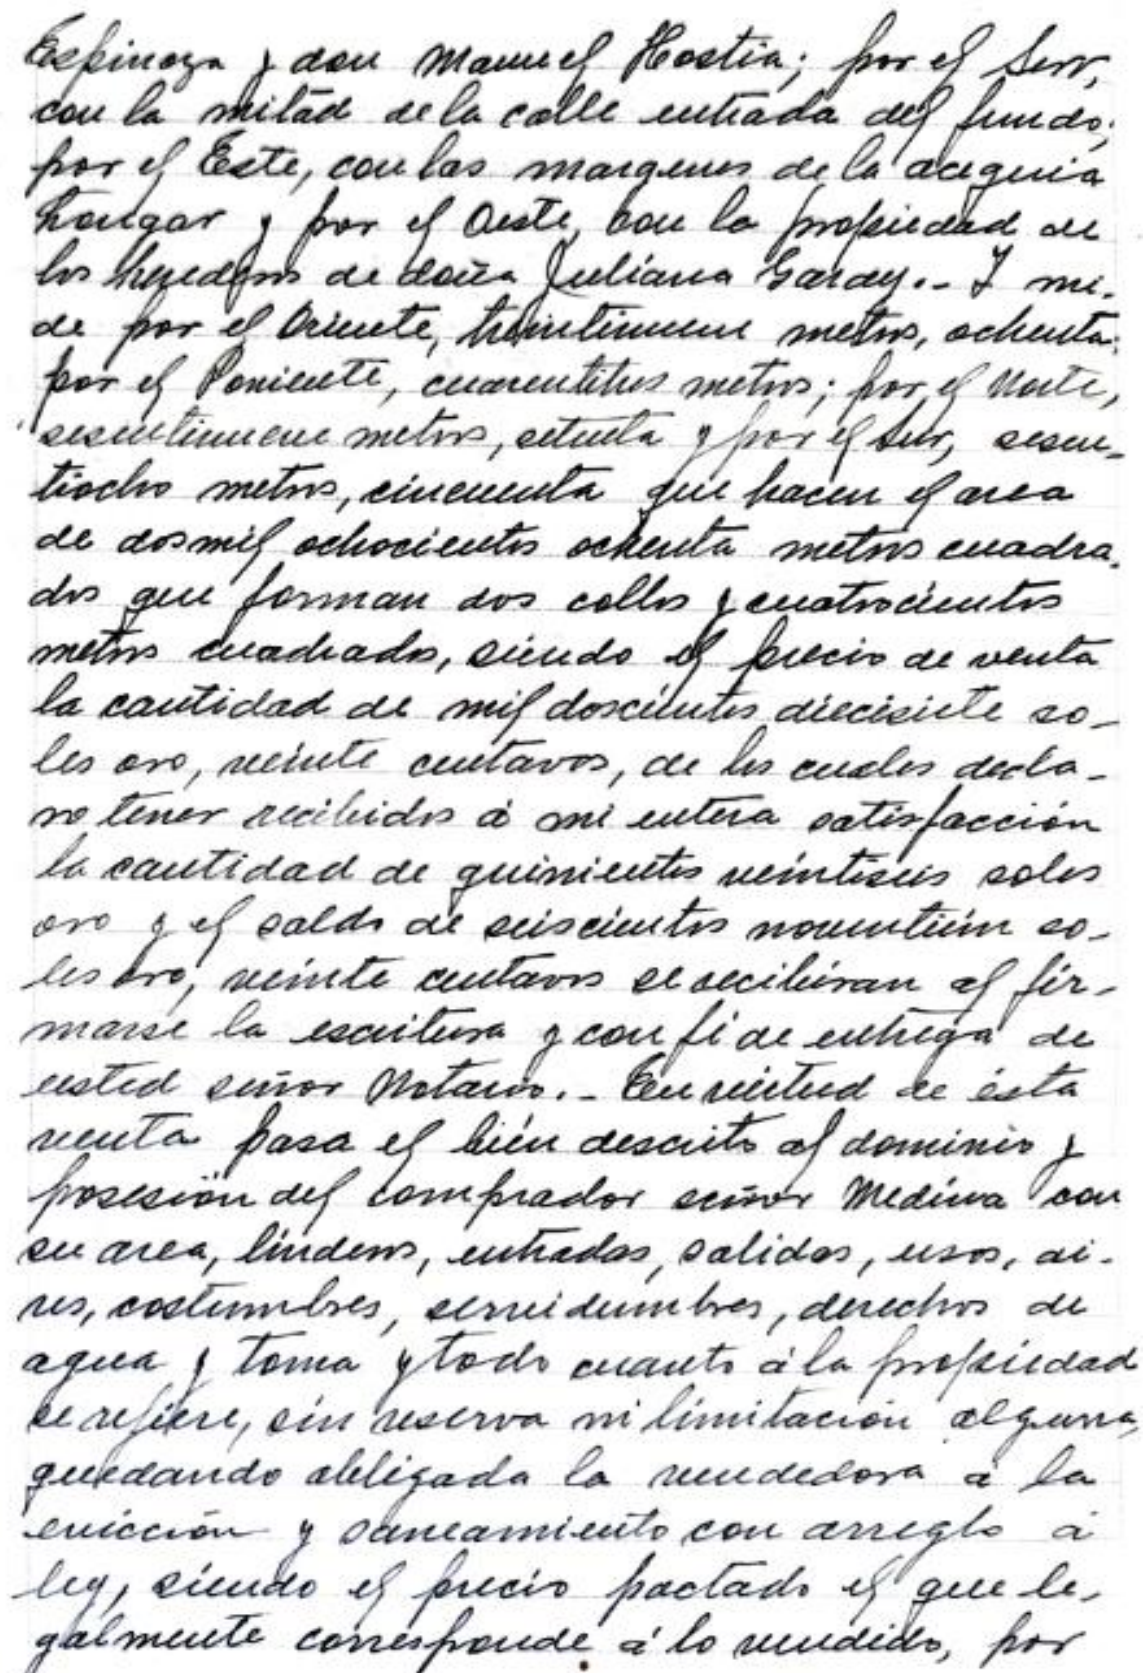 Espinoza y don Manuel Hostia; por el Sur,
con la mitad de la calle entrada del fundo;
por el Este, con las margenes de la acequia
y por el Oeste, con la propiedad de
los herederos de doña Juliana Garay.- I mi-
de por el Oriente, treintinueve metros, ochenta;
por el Poniente, cuarentitres metros; por el Norte,
sesentinueve metros, setenta y por el Sur, sesen-
tiocho metros, cincuenta que hacen el area
de dosmil ochocientos ochenta metros cuadra-
dos que forman dos collos y cuatrocientos
metros cuadrados, siendo el precio de venta
la cantidad de mil doscientos diecisiete so-
les oro, veinte centavos, de los cuales decla-
ro tener recibidos á mi entera satisfacción
la cantidad de quinientos veintiseis soles
oro y el saldo de seiscientos noventiún so-
les oro, veinte centavos se recibiran al fir-
marse la escritura y con fé de entrega de
usted señor Notario.- En virtud de ésta
venta pasa el bién descrito al dominio y
posesión del comprador señor Medina con
su area, linderos, entradas, salidas, usos, ai-
res, costumbres, servidumbres, derechos de
agua y toma y todo cuanto á la propiedad
se refiere, sin reserva ni limitación alguna,
quedando obligada la vendedora á la
evicción y saneamiento con arreglo á
ley, siendo el precio pactado el que le-
galmente corresponde á lo vendido, por